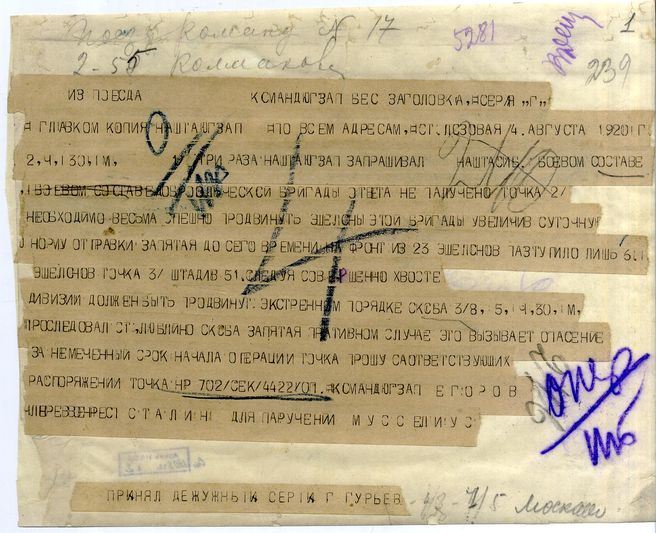 Команд N 17
5281
1
2-55 Колмаков
239
ИЗ ПОЕЗДА КСМАНДЮГЗАП БЕС ЗАГОЛОВКА, СЕРИЯ „Г"
ГЛАВКОМ КОПИЯ НАШТАЮГЗАП ПО ВСЕМ АДРЕСАМ, СТ. ЛОЗОВАЯ /4. АВГУСТА 1920 Г.
2,Ч,30,1М, 1/ ТРИ РАЗА НАШТАЮГЗАП ЗАПРАШИВАЛ НАШТАСИБ. БОЕВОМ СОСТАВЕ
БОЕВОМ СОСТАВЕ БРИГАДЫ ОТВЕТА НЕ ПАЛУЧЕНО ТОЧКА 2/
НЕОБХОДИМО ВЕСЬМА СПЕШНО ПРОДВИНУТЬ ЭШЕЛСНЫ ЭТОЙ БРИГАДЫ УВЕЛИЧИВ СУТОЧНУЮ
НОРМУ ОТПРАВКИ ЗАПЯТАЯ ДО СЕГО ВРЕМЕНИ НА ФРОНТ ИЗ 23 ЭШЕЛСНОВ ПАЗТУПИЛО ЛИШЬ 6.
ЭШЕЛСНОВ ТОЧКА 3/ ШТАДИВ 51. СЛЕДУЯ СОВЕРШЕННО ХВОСТЕ
ДИВИЗИИ ДОЛЖЕН БЫТЬ ПРОДВИНУТ. ЭКСТРЕННОМ ПОРЯДКЕ СКОБА 3/8, 5,Ч,30,1М,
ПРОСЛЕДОВАЛ СТ, ЛЮБЛИНО СКОБА ЗАПЯТАЯ ПРАТИВНОМ СЛУЧАЕ ЭТО ВЫЗЫВАЕТ ОПАСЕНИЕ
ЗА НЕМЕЧЕННЫЙ СРОК НАЧАЛА ОПЕРАЦИИ ТОЧКА ПРОШУ СААТВЕТСТВУЮЩИХ
РАСПОРЯЖЕНИИ ТОЧКА НР 702/СЕК/4422/ОП. КСМАНДЮГЗАП ЕГОРОВ
ЧЛЕРЕВВЕНРЕСТ СТАЛИН ДЛЯ ПАРУЧЕНИЙ МУССЕЛИУС
опер
ПРИНЯЛ ДЕЖУЖНЫЙ СЕРГИ Г ГУРЬЕВ